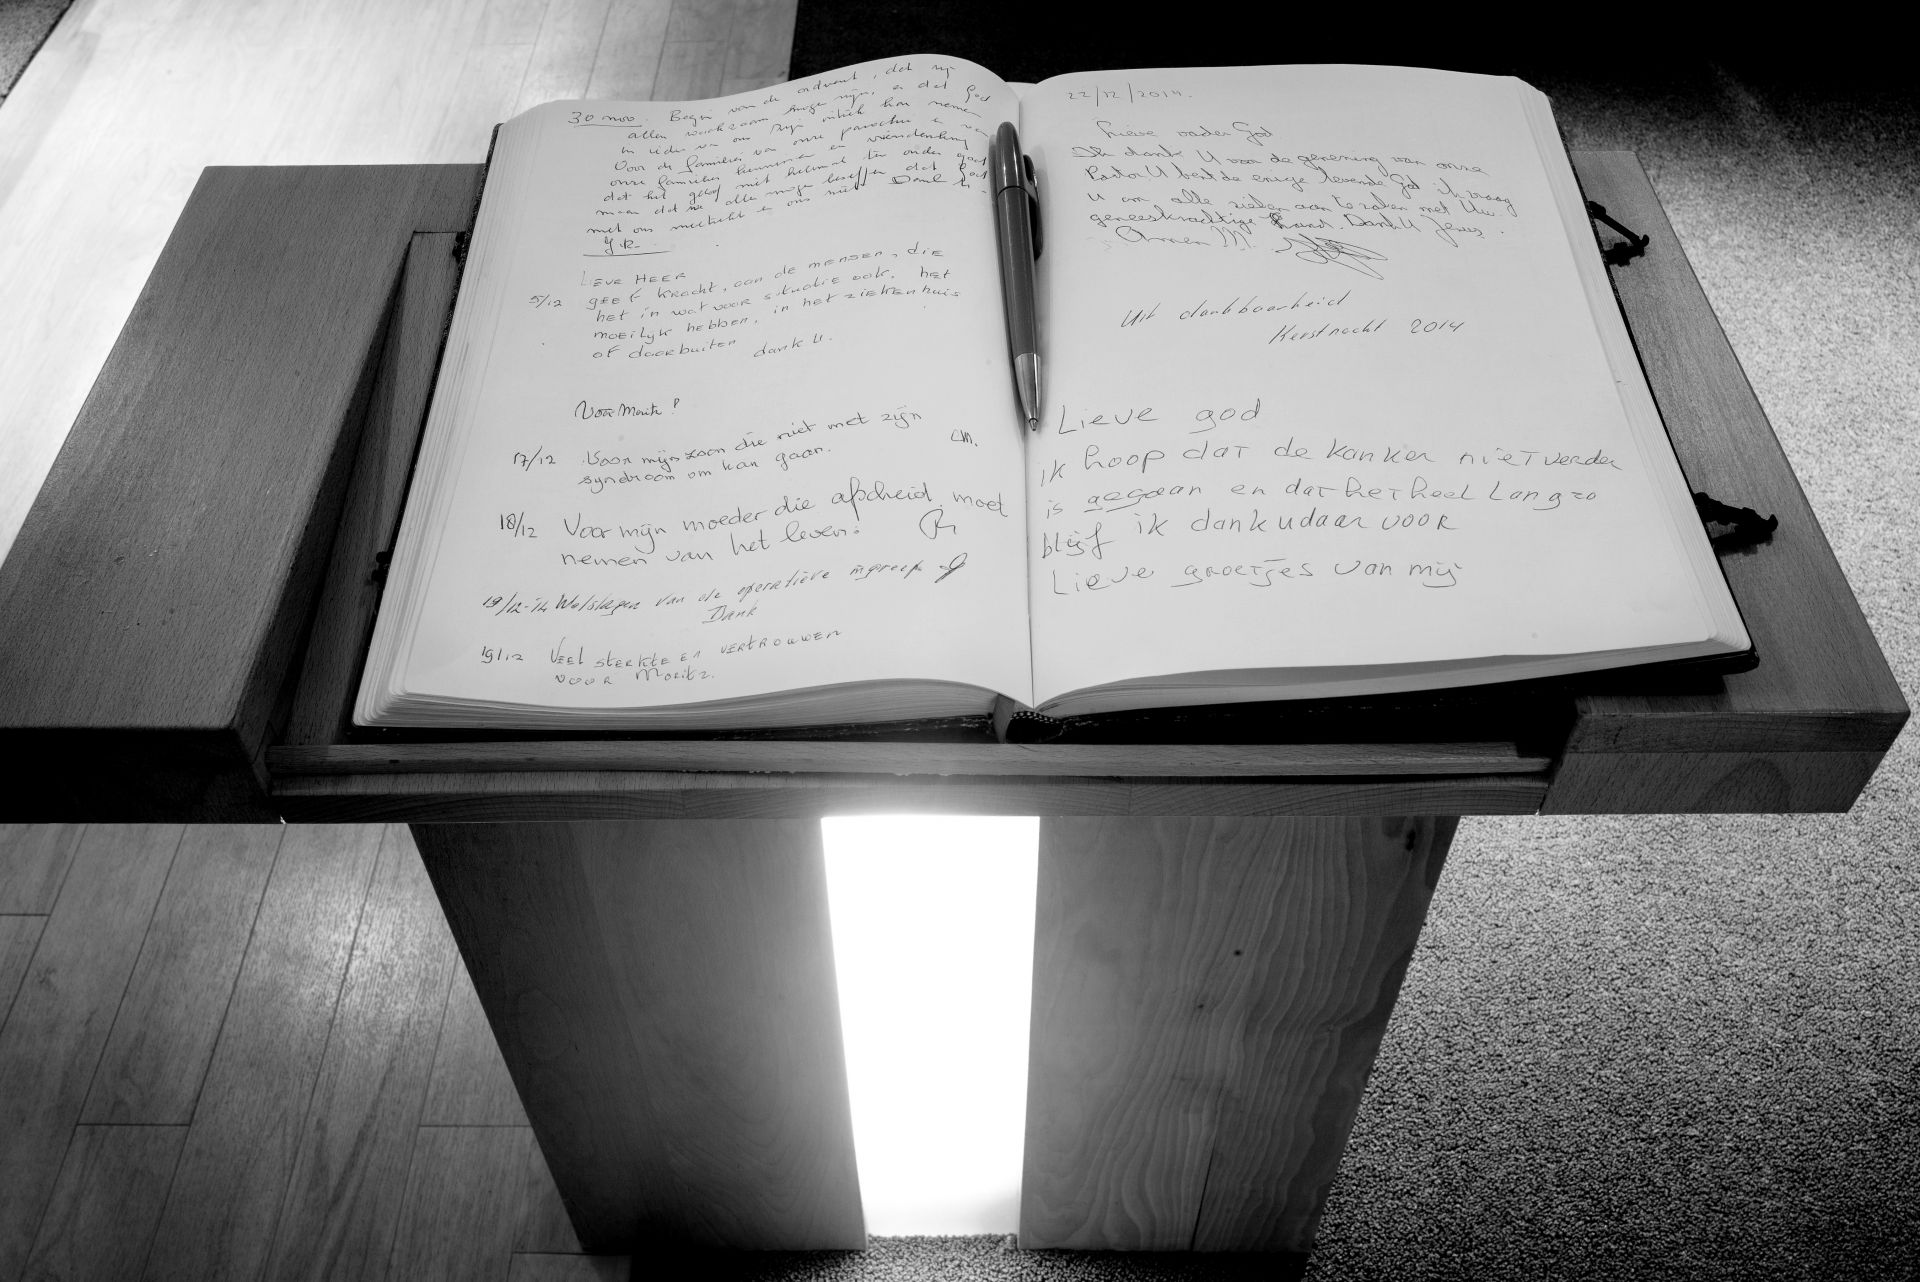 30 nov. Begin van de advent, dat wij
allen waakzaam mogen zijn, en dat God
in ieder van ons zijn intrek kan nemen
Voor de families van onze parochie en van
onze families kennissen en vriendenkring
dat het geloof niet helemaal ten onder gaat
maar dat we allen mogen beseffen dat God
met ons meetrekt en ons
LIEVE HEER
5/12 geef kracht, aan de mensen, die
het in wat voor situatie ook, het
moeilijk hebben, in het ziekenhuis
of daarbuiten dank U.
Voor Moritz!
17/12 Voor mijn zoon die niet met zijn
syndroom om kan gaan. CM.
18/12 Voor mijn moeder die afscheid moet
nemen van het leven.
19/12-14 Welslagen van de operatieve ingreep
Dank
19/12 Veel sterkte en vertrouwen
voor Moritz.
22/12/2014.
Lieve vader God
Ik dank U voor de genezing van onze
Pastor. U bent de enige levende God ik vraag
u om alle zielen aan te raken met Uw
geneeskrachtige hand. Dank U Jezus.
Amen M.
Uit dankbaarheid
Kerstnacht 2014
Lieve god
ik hoop dat de kanker niet verder
is gegaan en dat het heel lang zo
blijf ik dank u daar voor
Lieve groetjes van mij